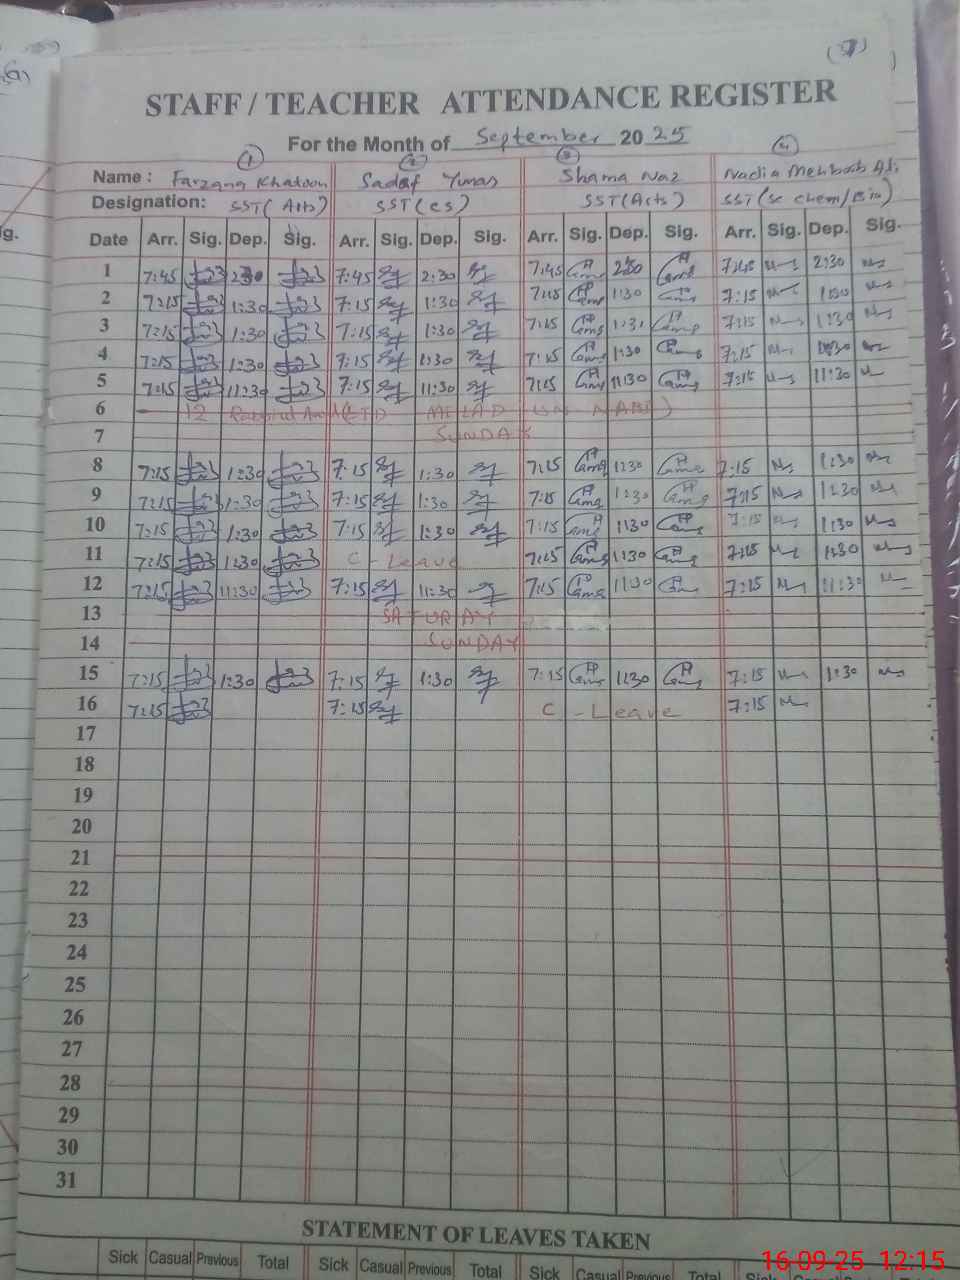 (7)
STAFF / TEACHER ATTENDANCE REGISTER
For the Month of September 2025
1 2 3 4
Name : Farzana Khatoon Sadaf Yunas Shama Naz Nadia Mehboob Ali
Designation: SST (Arts) SST (CS) SST (Arts) SST (Sc Chem/Bio)
Date Arr. Sig. Dep. Sig. Arr. Sig. Dep. Sig. Arr. Sig. Dep. Sig. Arr. Sig. Dep. Sig.
1 7:45 2:30 7:45 2:30 7:45 2:30 7:45 2:30
2 7:15 1:30 7:15 1:30 7:15 1:30 7:15 1:30
3 7:15 1:30 7:15 1:30 7:15 1:31 7:15 1:30
4 7:15 1:30 7:15 1:30 7:15 1:30 7:15 1:30
5 7:15 11:30 7:15 11:30 7:15 11:30 7:15 11:30
6 12 (EID MELAD UN NABI)
7 SUNDAY
8 7:15 1:30 7:15 1:30 7:15 1:30 7:15 1:30
9 7:15 1:30 7:15 1:30 7:15 1:30 7:15 1:30
10 7:15 1:30 7:15 1:30 7:15 1:30 7:15 1:30
11 7:15 1:30 C - Leave 7:15 1:30 7:15 1:30
12 7:15 11:30 7:15 11:30 7:15 11:30 7:15 11:30
13 SATURAY
14 SUNDAY
15 7:15 1:30 7:15 1:30 7:15 1:30 7:15 1:30
16 7:15 7:15 C - Leave 7:15
17
18
19
20
21
22
23
24
25
26
27
28
29
30
31
STATEMENT OF LEAVES TAKEN
Sick Casual Previous Total Sick Casual Previous Total Sick Casual Previous Total Sick Casual
16-09-25 12:15